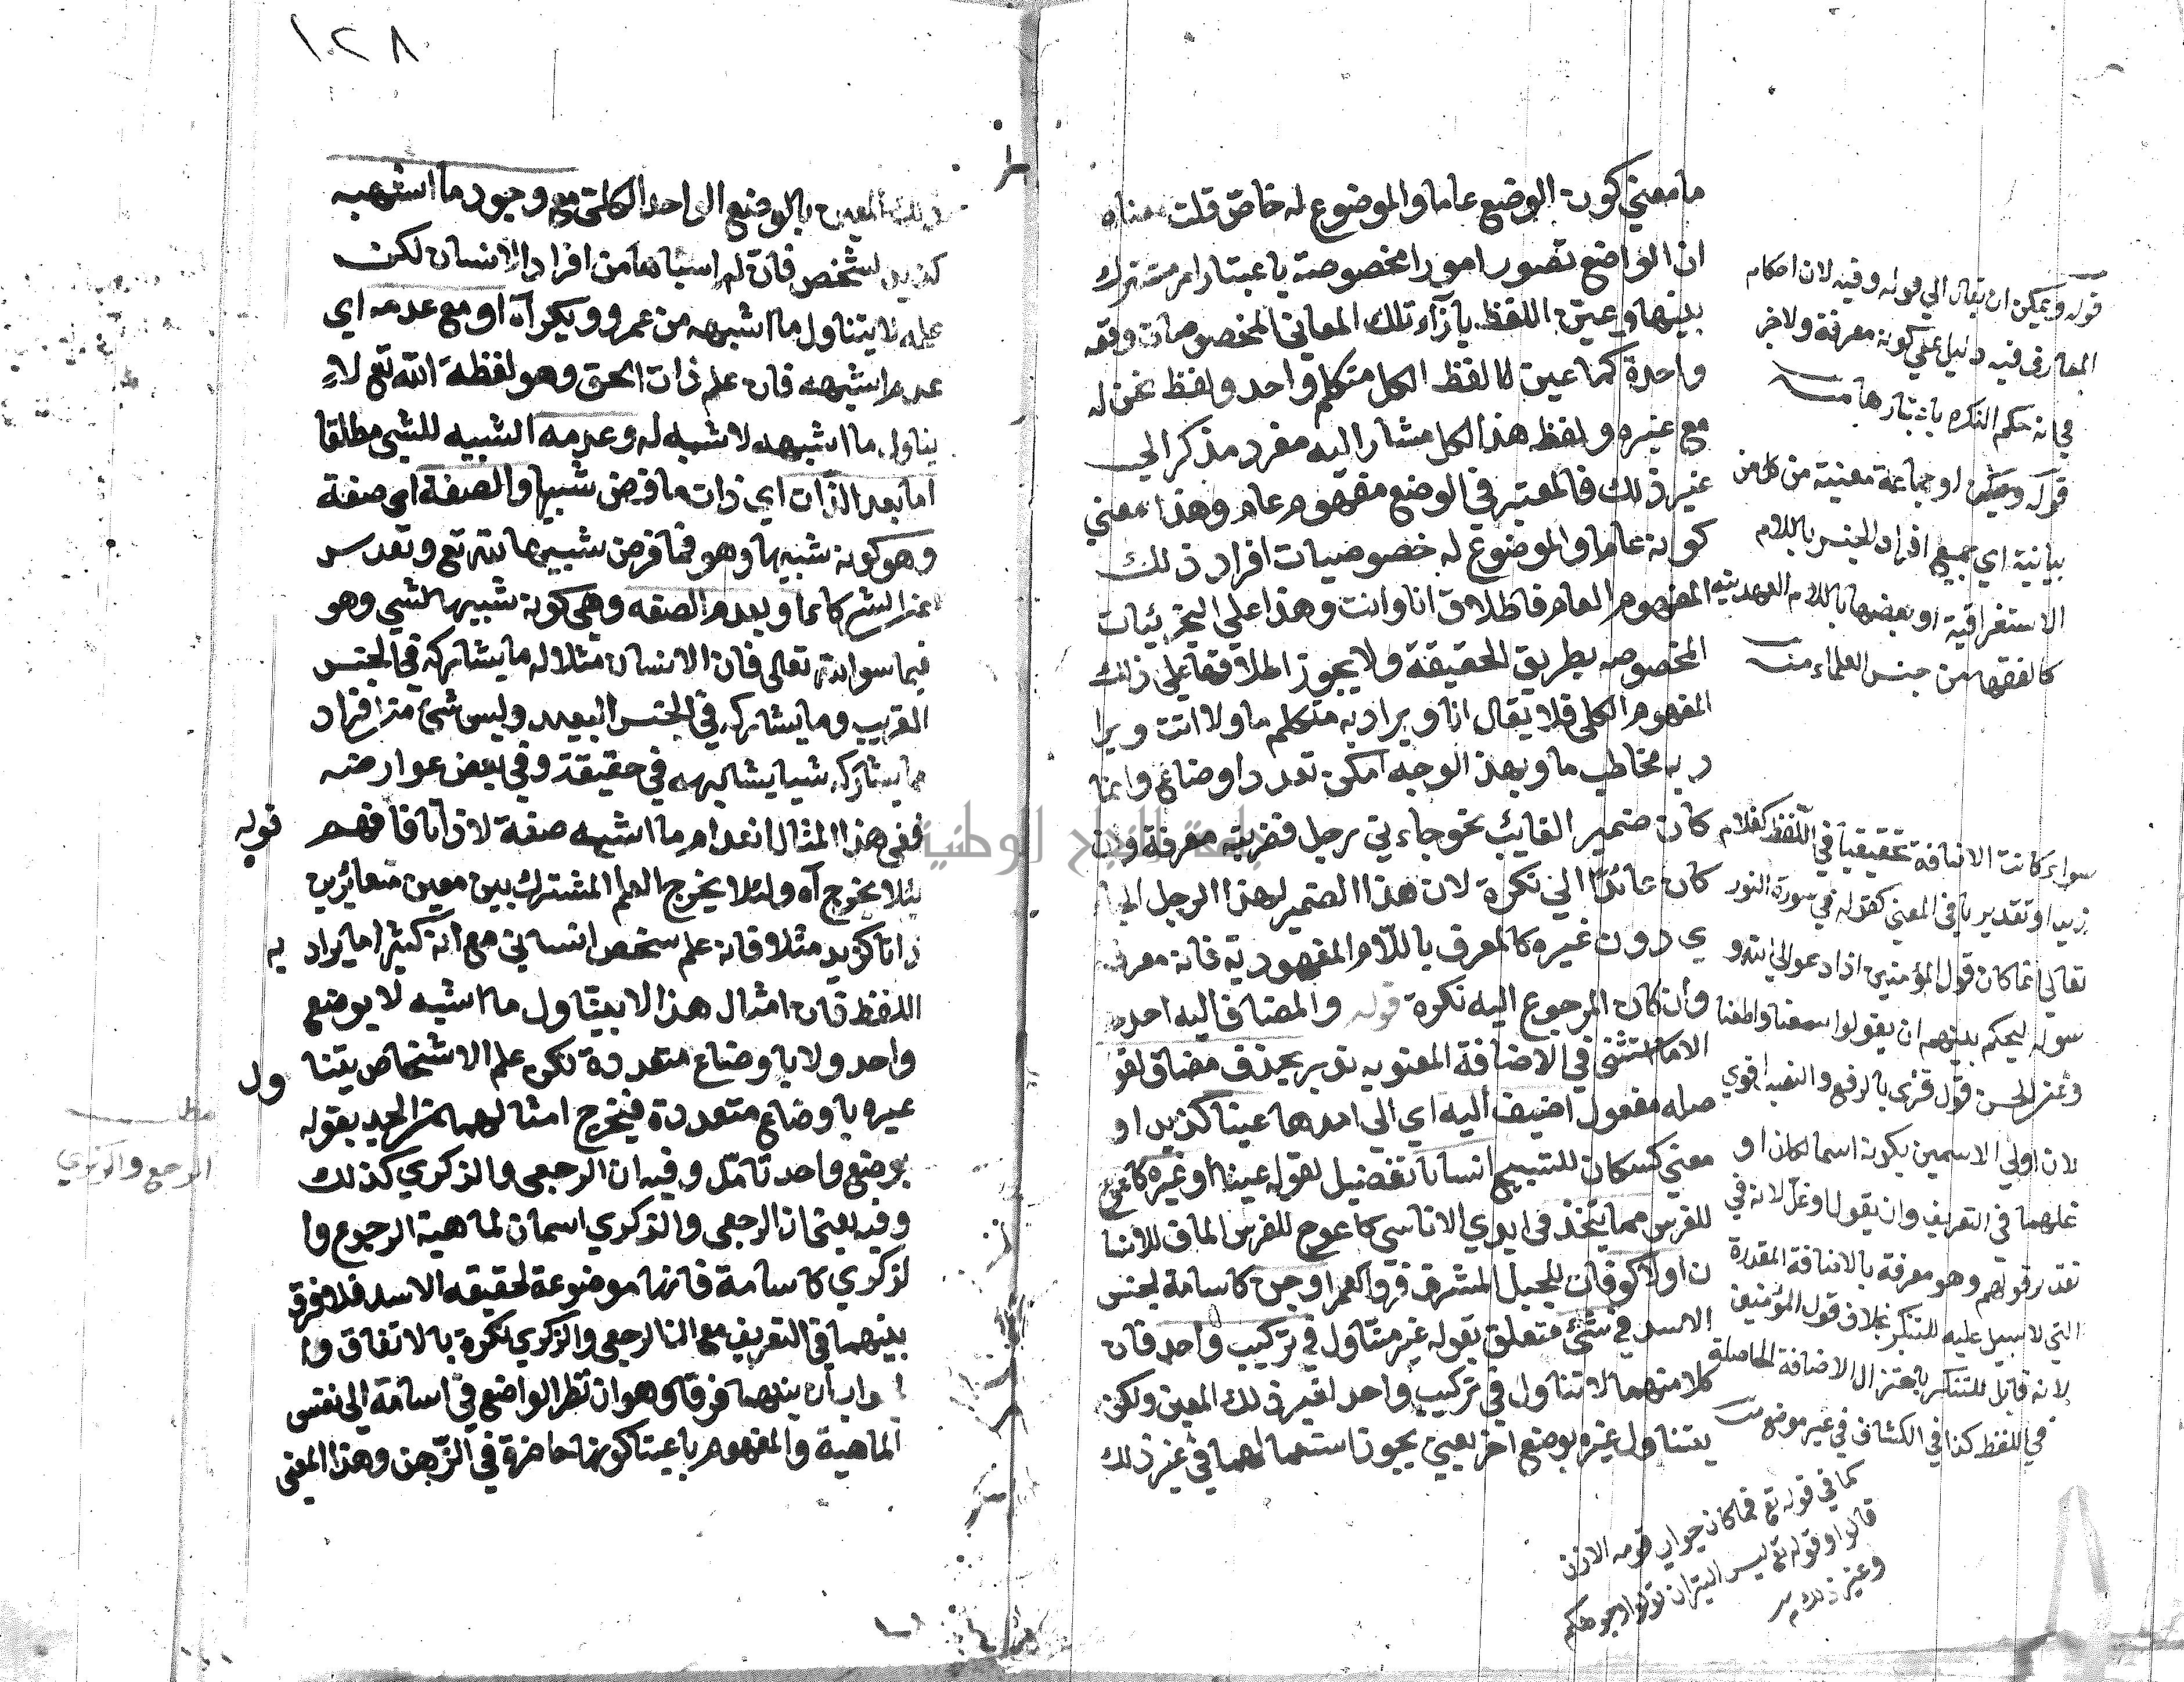 ما معني كون الوضع عاما والموضوع له خاص قلت معناه
ان الواضع تصور امورا مخصوصة باعتبار امر مشترك
بينها وعين اللفظ بازآء تلك المعاني المخصوصات دفعه
واحدة كما عين انا لفظ لكل متكلم واحد ولفظ نحن له
مع غيره ولفظ هذا لكل مشار اليه مفرد مذكر الي
غير ذلك فالمعتبر في الوضع مفهوم عام وهذا معني
كونه عاما والموضوع له خصوصيات افراد ذلك
المفهوم العام فاطلاق انا وانت وهذا علي الجزئيات
المخصوصه بطريق الحقيقة ولا يجوز اطلاقها علي ذلك
المفهوم الكلي فلا يقال انا ويراد به متكلم ما ولا انت ويرا
د به مخاطب ما وبهذا الوجه امكن تعدد اوضاع وانما
كان ضمير الغايب نحو جاءني رجل فضربته معرفة وان
كان عائدا الي نكرة لان هذا الضمير لهذا الرجل الجا
ي دون غيره كالمعرف باللام المعهودية فانه معرف
وان كان المرجوع اليه نكرة قوله والمضاف اليه احده
الا ما استثني في الاضافة المعنويه تدبر بحذف مضاف لقو
صله مفعول اضيف أليه اي الي احدها عينا كزيد او
معني كسبحان للتسبيح انسانا تفضيل لقوله عينا او غيره كاعوج
للفرس مما يتخذ في ايدي الاناسي كاعوج للفرس المافى للانسا
ن اولا كوفان للجبل المشرق فرو العمر او جن كاسامة لجنس
الاسد في شئ متعلق بقوله غير متناول في تركيب واحد فان
كلا منهما لا تناول في تركيب واحد لغير ذلك المعين ولكن
يتناول غيره بوضع اخر يعني يجوز استعمالهما في غير ذلك
قوله ويمكن ان يقال الي قوله وفيه لان احكام
المعارف فيه دليل علي كونه معرفة ولاخر
في انه حكم النكره باعتبارها منه
قوله ويمكن او جماعة معينة من كل من
بيانية اي جميع افراد الجنس باللام
الاستغراقية او بعضها باللام العهدية
كالفقهاء من جنس العلماء منه
سواء كانت الاضافة تحقيقيا في اللفظ كغلام
زيد او تقديريا في المعني كقوله في سورة النور
تعالي انما كان قول المؤمنين اذا دعوا الي الله ور
سوله ليحكم بينهم ان يقولوا سمعنا واطعنا
وعن الحسن قول قرئ بالرفع والنصب اقوي
لان اولي الاسمين بكونه اسما لكان او
غلهما في التعريف وان يقولوا وغل لانه في
تقدير قولهم وهو معرفة بالاضافة المقدرة
التي لا سبيل عليه للتنكير بخلاف قول المؤمنين
لانه قابل للتنكير باعتزال الاضافة الحاصلة
في اللفظ كذا في الكشاف في غير موضع منه
كما في قوله تع فما كان جواب قومه الا ان
قالوا وقوله تع ليس البر ان تولوا وجوهكم
وغير ذلك م
١٢٨
ذلك المعين بالوضع الواحد الكلي مع وجود ما اشبهه
كزيد لشخص فان له اشباها من افراد الانسان لكن
علمه لا يتناول ما اشبهه من عمرو وبكر آه او مع عدمه اي
عدم اشبهه فان علم ذات الحق وهو لفظة الله تع لا
يناول ما اشبهه لا شبه له وعدمه الشبيه للشئ مطلقا
اما بعد الذات اي ذات ما فرض شبيها والصفة اي صفة
وهو كونه شبيها وهو فما فرض شبيها لله تع وتقدس
عن الشركاء او بعدم الصفه وهي كونه شبيها لشي وهو
فيما سوا الله تعالي فان الانسان مثلا له ما يشاركه في الجنس
القريب وما يشاركه في الجنس البعيد وليس شئ من افراد
ما يشاركه شيا يشابهه في حقيقة وفي بعض عوارضه
ففي هذا المثال انعدام ما اشبهه صفة لا ذاتا فافهم قوله
لئلا يخرج آه ولئلا يخرج العلم المشترك بين معين متغايرين
ذاتا كزيد مثلا فانه علم سخص انساني مع انه كثيرا ما يراد به
اللفظ فان امثال هذا لا يتناول ما اشبه لا بوضع
واحد ولا باوضاع متعددة لكن علم الاشخاص يتناول
غيره باوضاع متعددة فيخرج امثالهما عن الحد بقوله
بوضع واحد تامل وفيه ان الرجعي والذكري كذلك
وفيه يعني ان الرجعي والذكري اسمان لماهية الرجوع وا
لذكري كاسامة فانها موضوعة لحقيقه الاسد فلا فرق
بينهما في التعريف مع ان الرجعي والذكري نكرة بالاتفاق وا
جواب أن بينهما فرقا وهو ان نظر الواضع في اسامة الي نفس
الماهية والمفهوم باعتبار كونها حاضرة في الذهن وهذا المعني
مطلب
الرجع والذكري
جامعة النجاح الوطنية